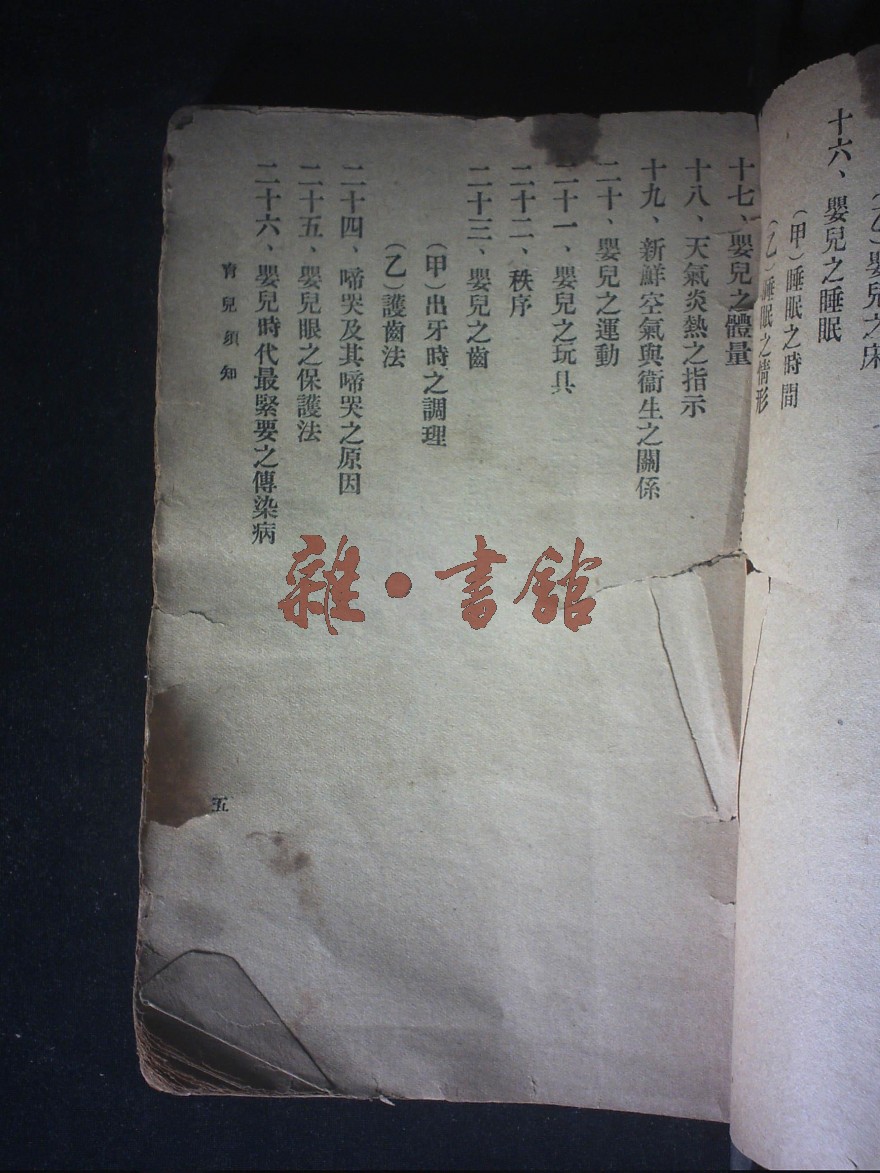 (乙)嬰兒之床
十六、嬰兒之睡眠
(甲)睡眠之時間
(乙)睡眠之情形
十七、嬰兒之體量
十八、天氣炎熱之指示
十九、新鮮空氣與衞生之關係
二十、嬰兒之運動
二十一、嬰兒之玩具
二十二、秩序
二十三、嬰兒之齒
(甲)出牙時之調理
(乙)護齒法
二十四、啼哭及其啼哭之原因
二十五、嬰兒眼之保護法
二十六、嬰兒時代最緊要之傳染病
育兒須知
五
雜·書館